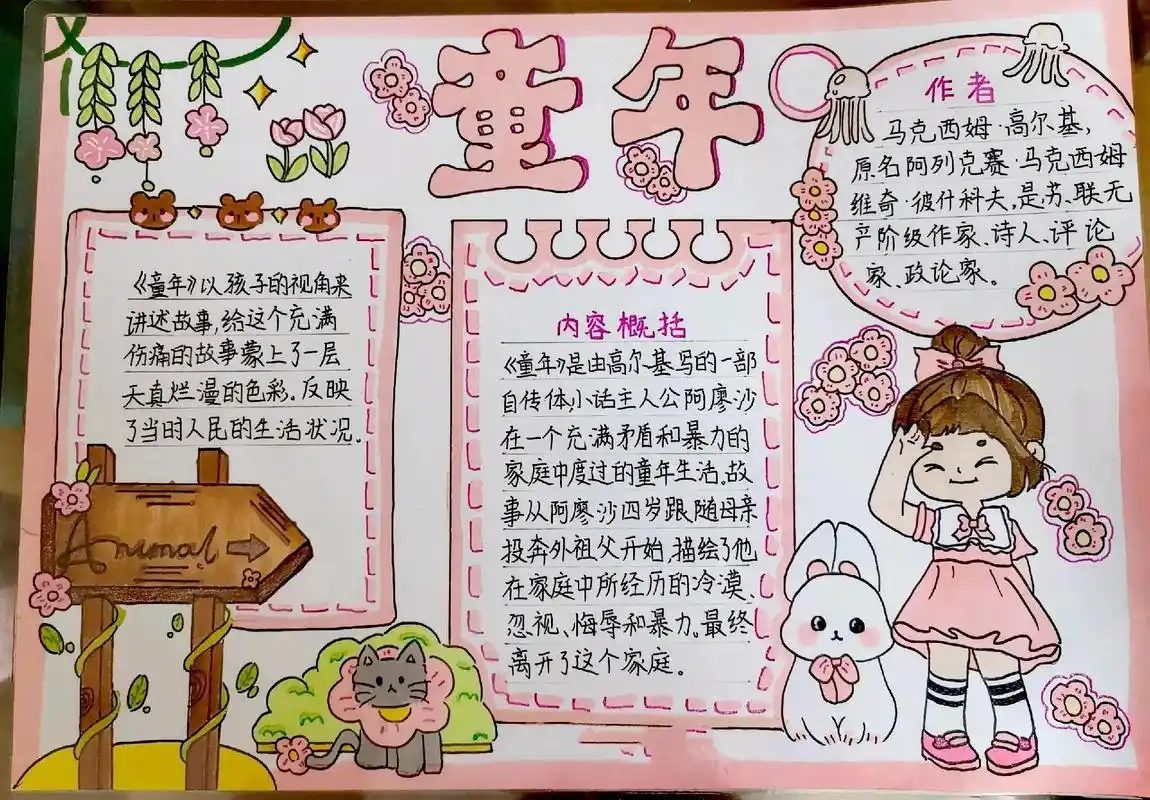 童年
《童年》以孩子的视角来
讲述故事,给这个充满
伤痛的故事蒙上了一层
天真烂漫的色彩。反映
了当时人民的生活状况。
Animal
内容概括
《童年》是由高尔基写的一部
自传体,小话主人公阿廖沙
在一个充满矛盾和暴力的
家庭中度过的童年生活,故
事从阿廖沙四岁跟随母亲
投奔外祖父开始,描绘了他
在家庭中所经历的冷漠、
忽视、悔辱和暴力。最终
离开了这个家庭。
作者
马克西姆·高尔基,
原名阿列克赛·马克西姆
维奇·彼什科夫,是苏联无
产阶级作家、诗人、评论
家、政论家。